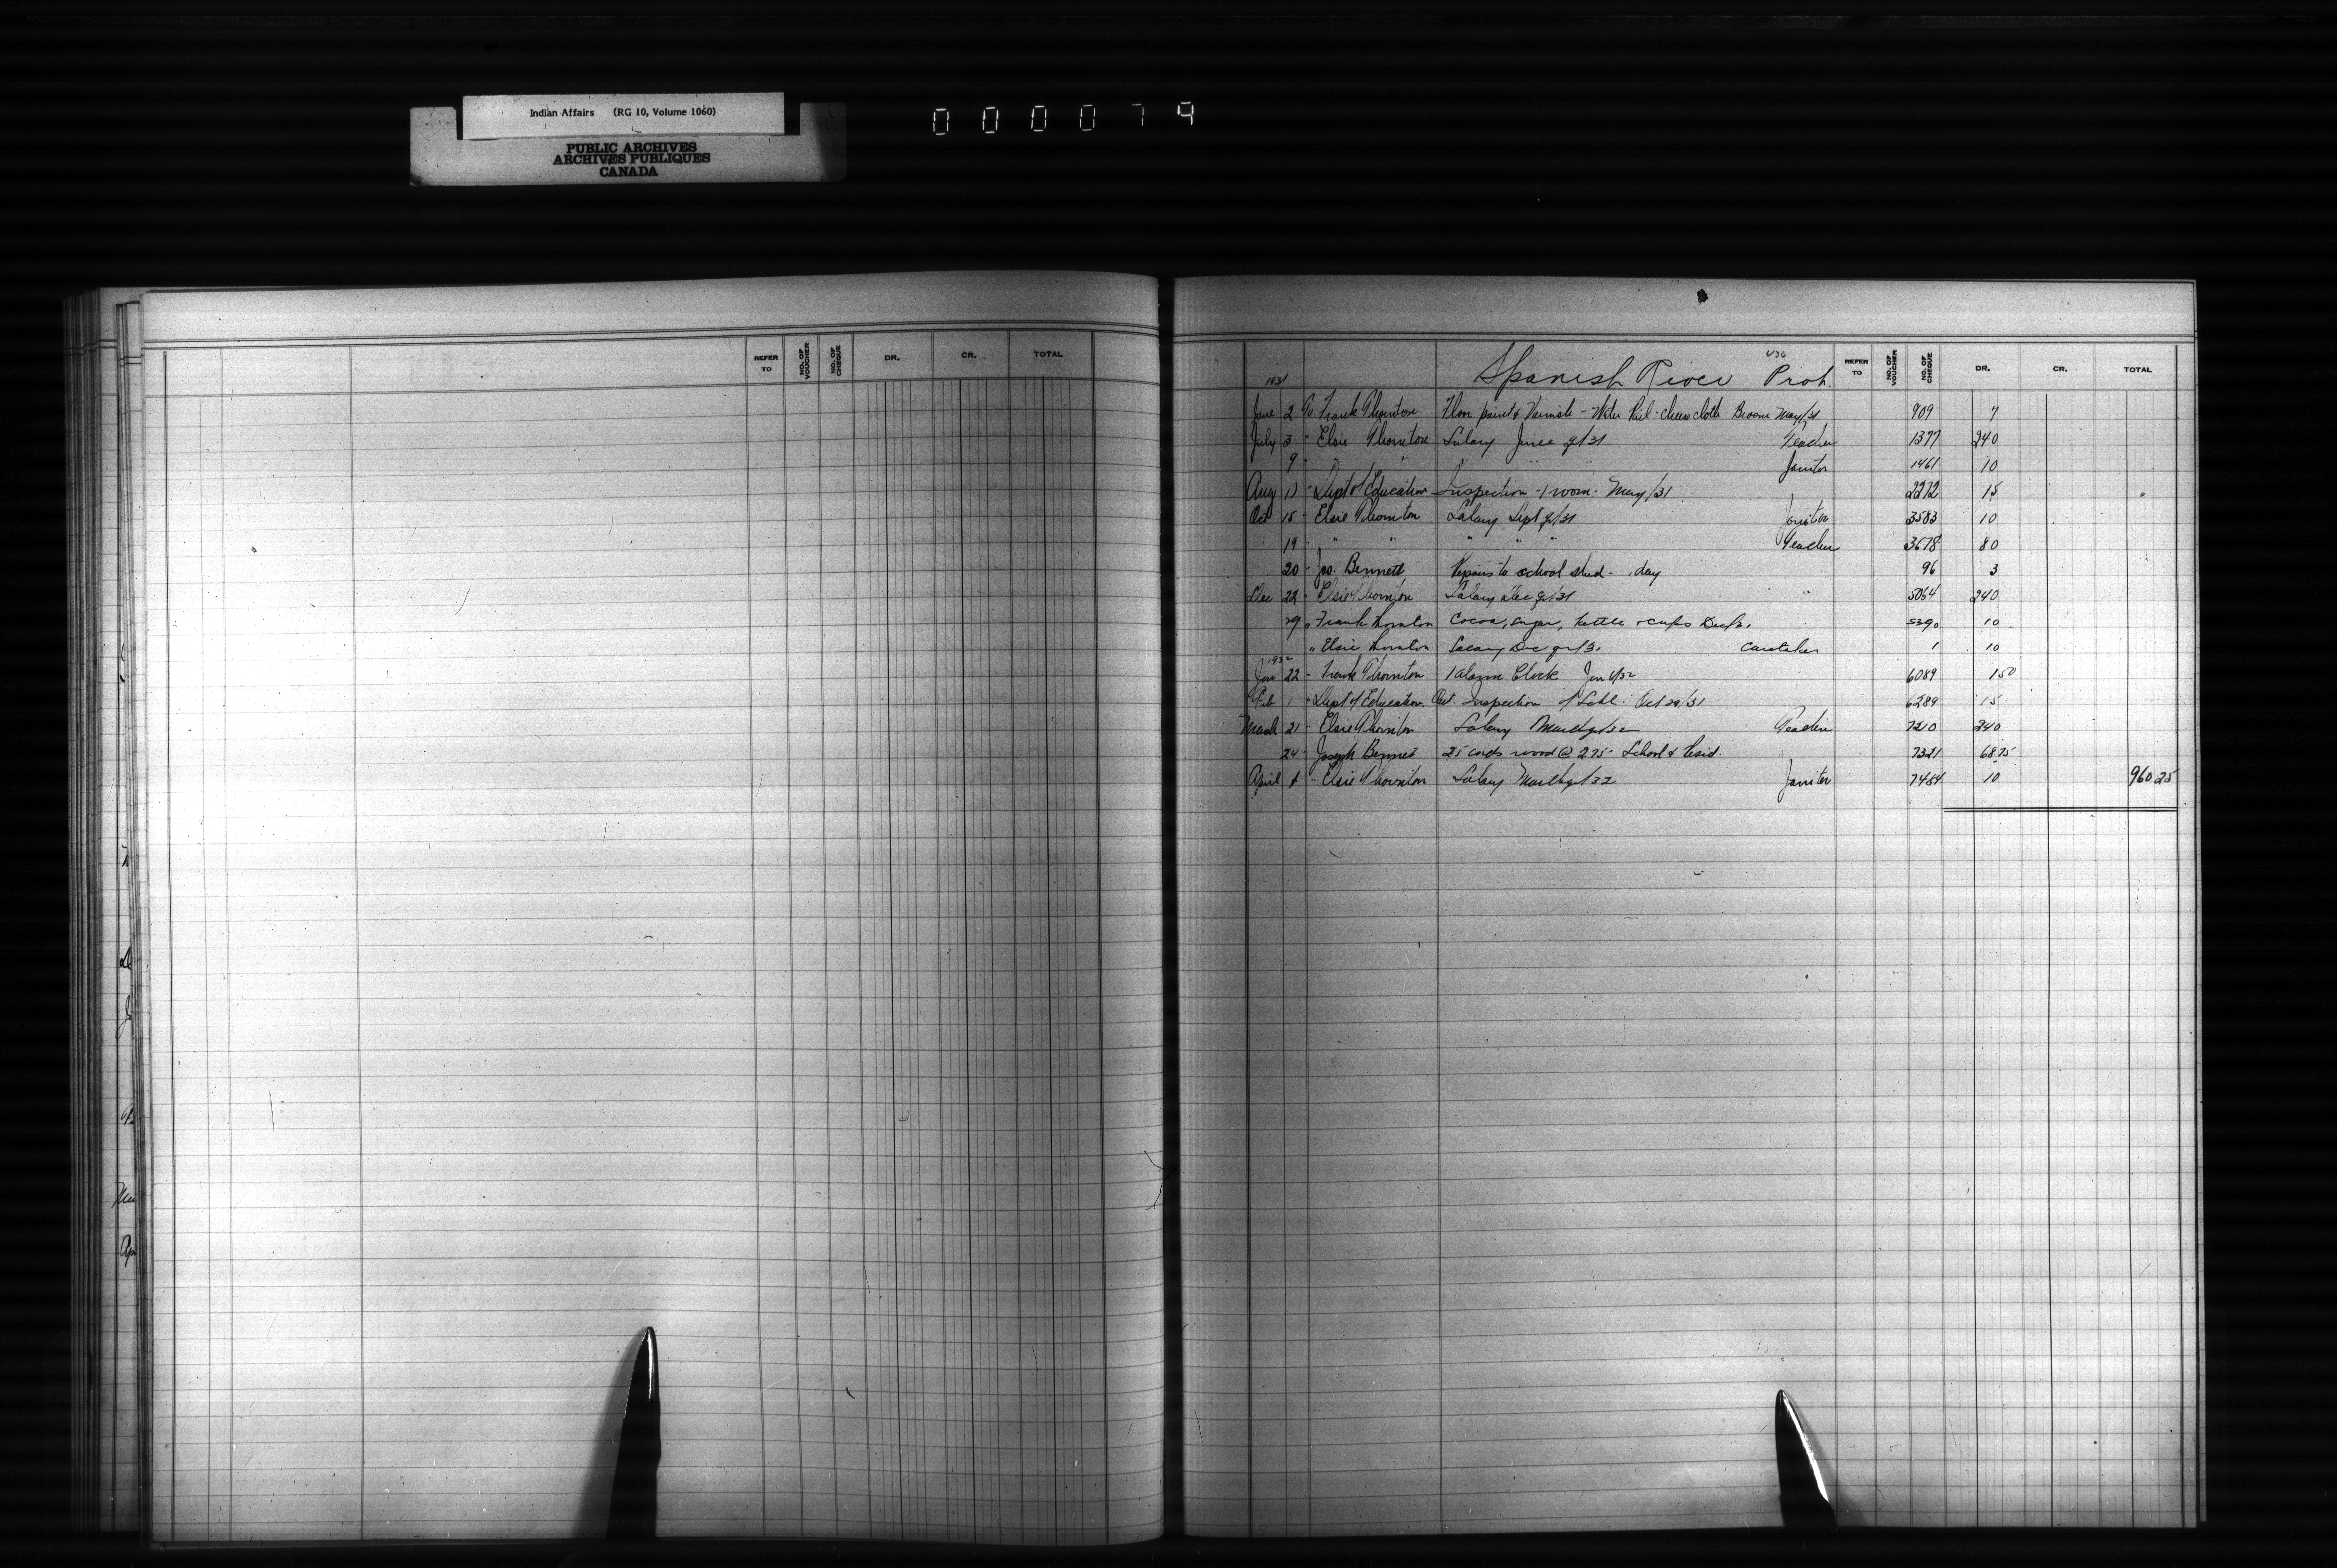 Indian Affairs (RG 10, Volume 1060)
PUBLIC ARCHIVES
ARCHIVES PUBLIQUES
CANADA
000079
REFER TO NO. OF VOUCHER NO. OF CHEQUE DR. CR. TOTAL
436
Spanish River Prot. REFER TO NO. OF VOUCHER NO. OF CHEQUE DR. CR. TOTAL
1931
June 2 To Frank Thornton Floor paint & Varnish - Water Pail - cheese cloth Broom May/31 909 7
July 3 - Elsie Thornton Salary June qr/31 Teacher 1377 240
9 - " " " " " Janitor 1461 10
Aug 13 - Dept of Education Inspection - 1 room - May/31 2272 15
Oct 15 - Elsie Thornton Salary Sept qr/31 Janitor 3583 10
19 - " " " " " Teacher 3678 80
20 - Jas. Bennett Repairs to school shed - day 96 3
Dec 22 - Elsie Thornton Salary Dec qr/31 " 5064 240
29 " Frank Thornton Cocoa, sugar, kettle & cups Dec/31 5390 10
" Elsie Thornton Salary Dec qr/31 Caretaker 1 10
1932
Jan 22 - Frank Thornton 1 Alarm Clock Jan 4/32 6089 1 50
Feb 1 - Dept of Education Ont. Inspection of Schl. Oct 29/31 6289 15
March 21 - Elsie Thornton Salary March qr/32 Teacher 7210 240
24 - Joseph Bennet 25 cords wood @ 2.75 - School & Resid. 7321 68.75
April 4 - Elsie Thornton Salary March qr/32 Janitor 7484 10 960 25